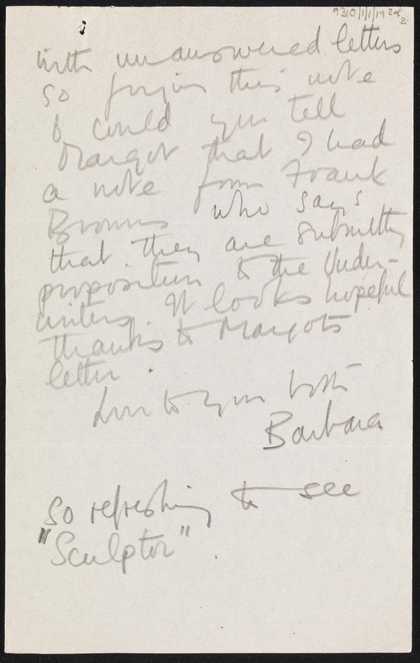 9310/1/1/19 2 of 2
with unanswered letters
so forgive this note
& could you tell
Margot that I had
a note from Frank
who says
that they are submitting
proposition to the Under-
writers. It looks hopeful
thanks to Margots
letter.
Love to you both
Barbara
So refreshing to see
"Sculptor".